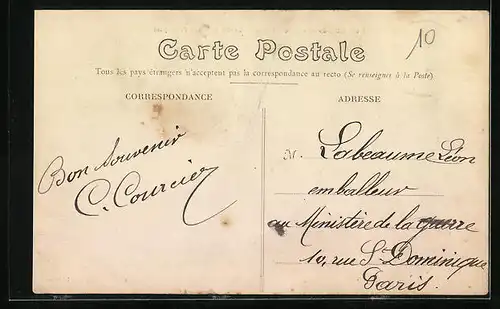 10
Carte Postale
Tous les pays étrangers n'acceptent pas la correspondance au recto (Se renseigner à la Poste)
CORRESPONDANCE
Bon Souvenir
C. Courcier
ADRESSE
M. Labeaume Léon
emballeur
au Ministère de la guerre
10, rue St Dominique
Paris.